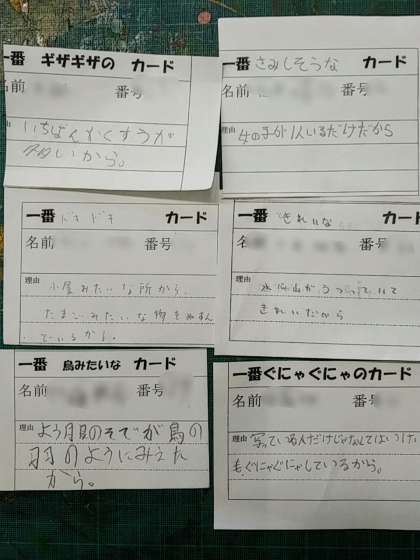 一番 ギザギザの カード
名前 番号
理由 いちばんかくすうが
多いから。
一番 さみしそうな カード
名前 番号
理由 女の子が1人いるだけだから
一番 ドキドキ カード
名前 番号
理由
小屋みたいな所から、
たまごみたいな物を
ているから。
一番 きれいな カード
名前 番号
理由
水に山がうつっていて
きれいだから
一番 鳥みたいな カード
名前 番号
理由 よう服のそでが鳥の
羽のようにみえた
から。
一番ぐにゃぐにゃのカード
名前 番号
理由 写っている人だけじゃなくてはいけい
もぐにゃぐにゃしているから。